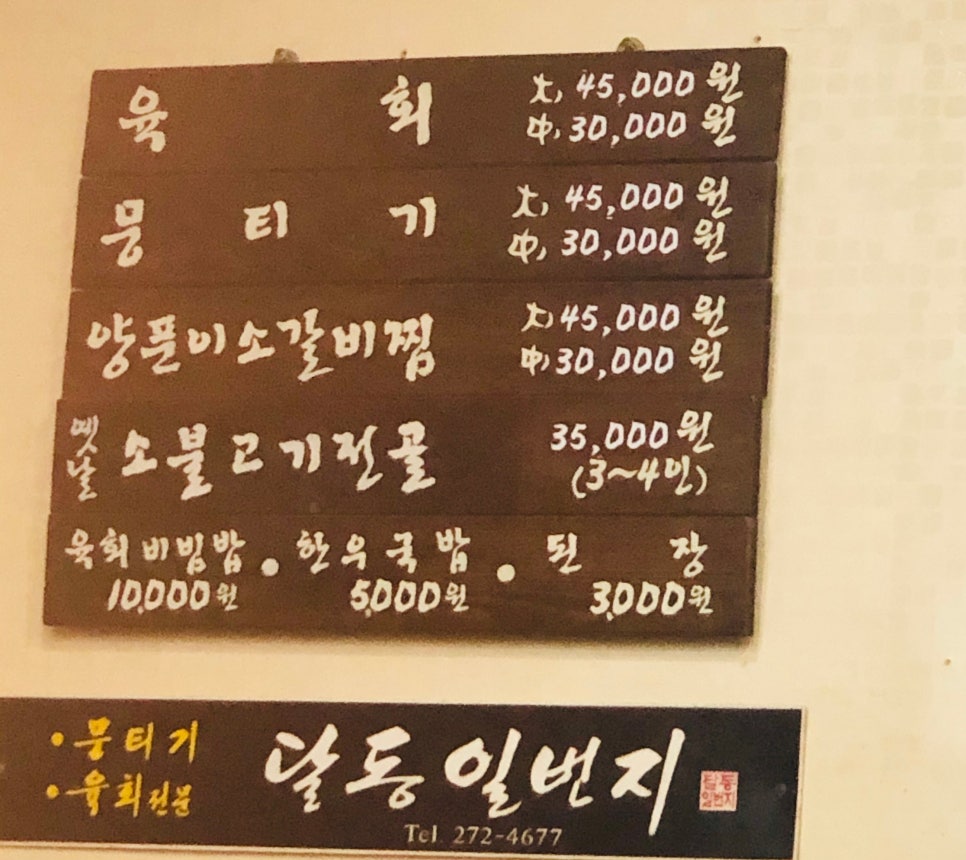 육회 大, 45,000원
中, 30,000원
뭉티기 大, 45,000원
中, 30,000원
양푼이소갈비찜 大, 45,000원
中, 30,000원
옛날 소불고기전골 35,000원
(3~4인)
육회비빔밥 • 한우국밥 • 된장
10,000원 5,000원 3,000원
• 뭉티기
• 육회전문
달동일번지
달동
일번지
Tel. 272-4677